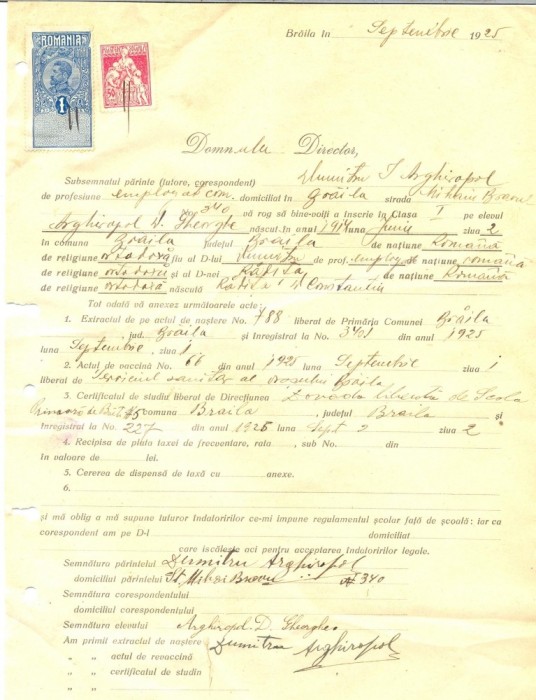 ROMANIA
1
Brăila în Septembrie 1925
Domnule Director,
Dumitru I Arghiropol
Subsemnatul părinte (tutore, corespondent)
de profesiune employat com. domiciliat în Brăila strada Mihaiu Bravu
No. 340 vă rog să bine-voiți a înscrie în Clasa I pe elevul
Arghiropol D. Gheorghe născut în anul 1914 luna Junie ziua 2
în comuna Brăila județul Brăila de națiune Română
de religiune ortodoxă fiu al D-lui Dumitru de prof. employat națiune română
de religiune ortodoxă și al D-nei de națiune Română
de religiune ortodoxă născută Constantin
Tot odată vă anexez următoarele acte:
1. Extractul de pe actul de naștere No. 788 liberat de Primăria Comunei Brăila
jud. Brăila și înregistrat la No. 3401 din anul 1925
luna Septembrie, ziua 1
2. Actul de vaccină No. 66 din anul 1925 luna Septembrie ziua 1
liberat de Serviciul sanitar al orașului Brăila
3. Certificatul de studii liberat de Direcțiunea Dovada liberată de Scola
Primară de Băt comuna Braila, județul Braila și
înregistrat la No. 227 din anul 1925 luna Sept 2 ziua 2
4. Recipisa de plata taxei de frecuentare, rata, sub No. din
în valoare de lei.
5. Cererea de dispensă de taxă cu anexe.
6.
și mă oblig a mă supune tuturor îndatoririlor ce-mi impune regulamentul școlar față de școală: iar ca
corespondent am pe D-l domiciliat
care iscălește aci pentru acceptarea îndatoririlor legale.
Semnătura părintelui Dumitru Arghiropol
domiciliul părintelui St. Mihai Bravu # 340
Semnătura corespondentului
domiciliul corespondentului
Semnătura elevului Arghiropol D. Gheorghe
Am primit extractul de naștere Dumitru Arghiropol
„ „ actul de revaccină
„ „ certificatul de studii